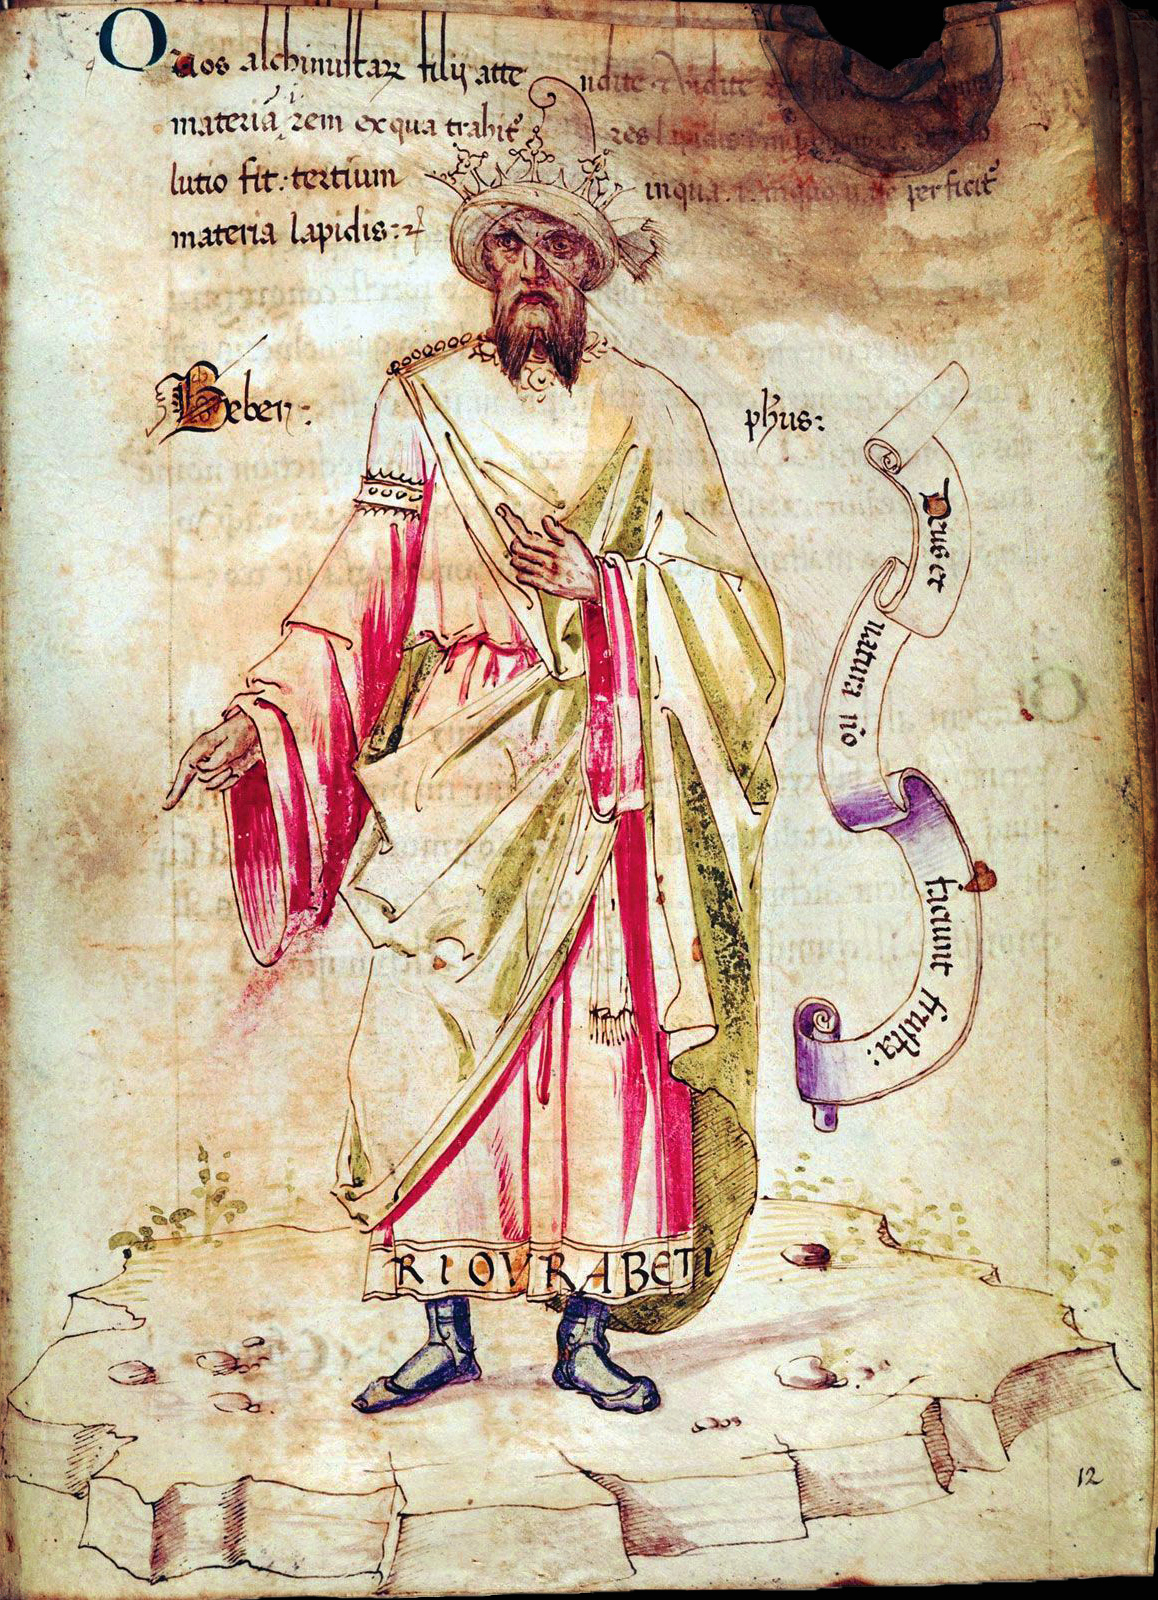 O vos alchimistaꝝ filij atte ndite et videte
materiā rem ex qua trahit᷑ res lapidis
lutio fit: tertium inqua perficit᷑
materia lapidis:
Geber:
phus:
Deus et
natura nō
faciunt frusta:
RIOVRABETI
12